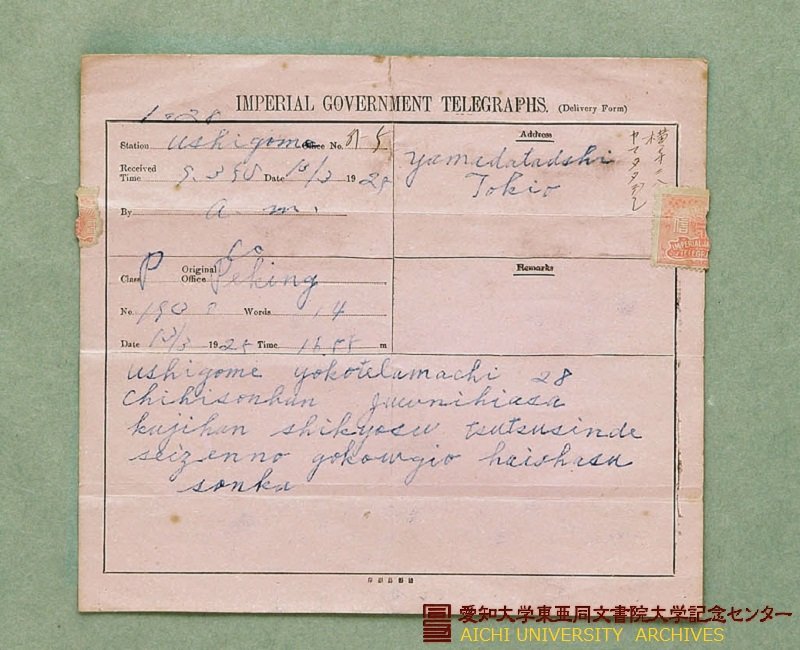 IMPERIAL GOVERNMENT TELEGRAPHS. (Delivery Form)
Station ushigome Office No.
Received Time Date 13/3 1925
By a. m.
Address
yamadatadshi
Tokio
ヤマダタダシ
Class P Original Office Peking
No. Words 14
Date 13/3 1925 Time m
Remarks
ushigome yokotelamachi 28
chichisonbun juunihiasa
kujihan shikyosu tsutsusinde
seizenno gokowgio haishasu
sonka
愛知大学東亜同文書院大学記念センター
AICHI UNIVERSITY ARCHIVES